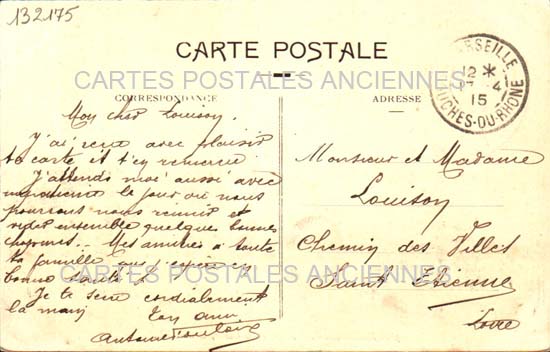 132175
CARTE POSTALE
CARTES POSTALES ANCIENNES
CORRESPONDANCE
ADRESSE
MARSEILLE
12 *
4
15
BOUCHES-DU-RHÔNE
Mon cher Louison,
J'ai reçu avec plaisir
ta carte et t'en remercie.
J'attends moi aussi avec
le jour où nous
pourrons nous réunir et
vider ensemble quelques bonnes
chopines. Mes amitiés à toute
ta famille que j'espère en
bonne santé
Je te serre cordialement
la main
Ton ami
Antoine
Monsieur et Madame
Louison
Chemin des Villes
Saint Etienne
Loire
CARTES POSTALES ANCIENNES